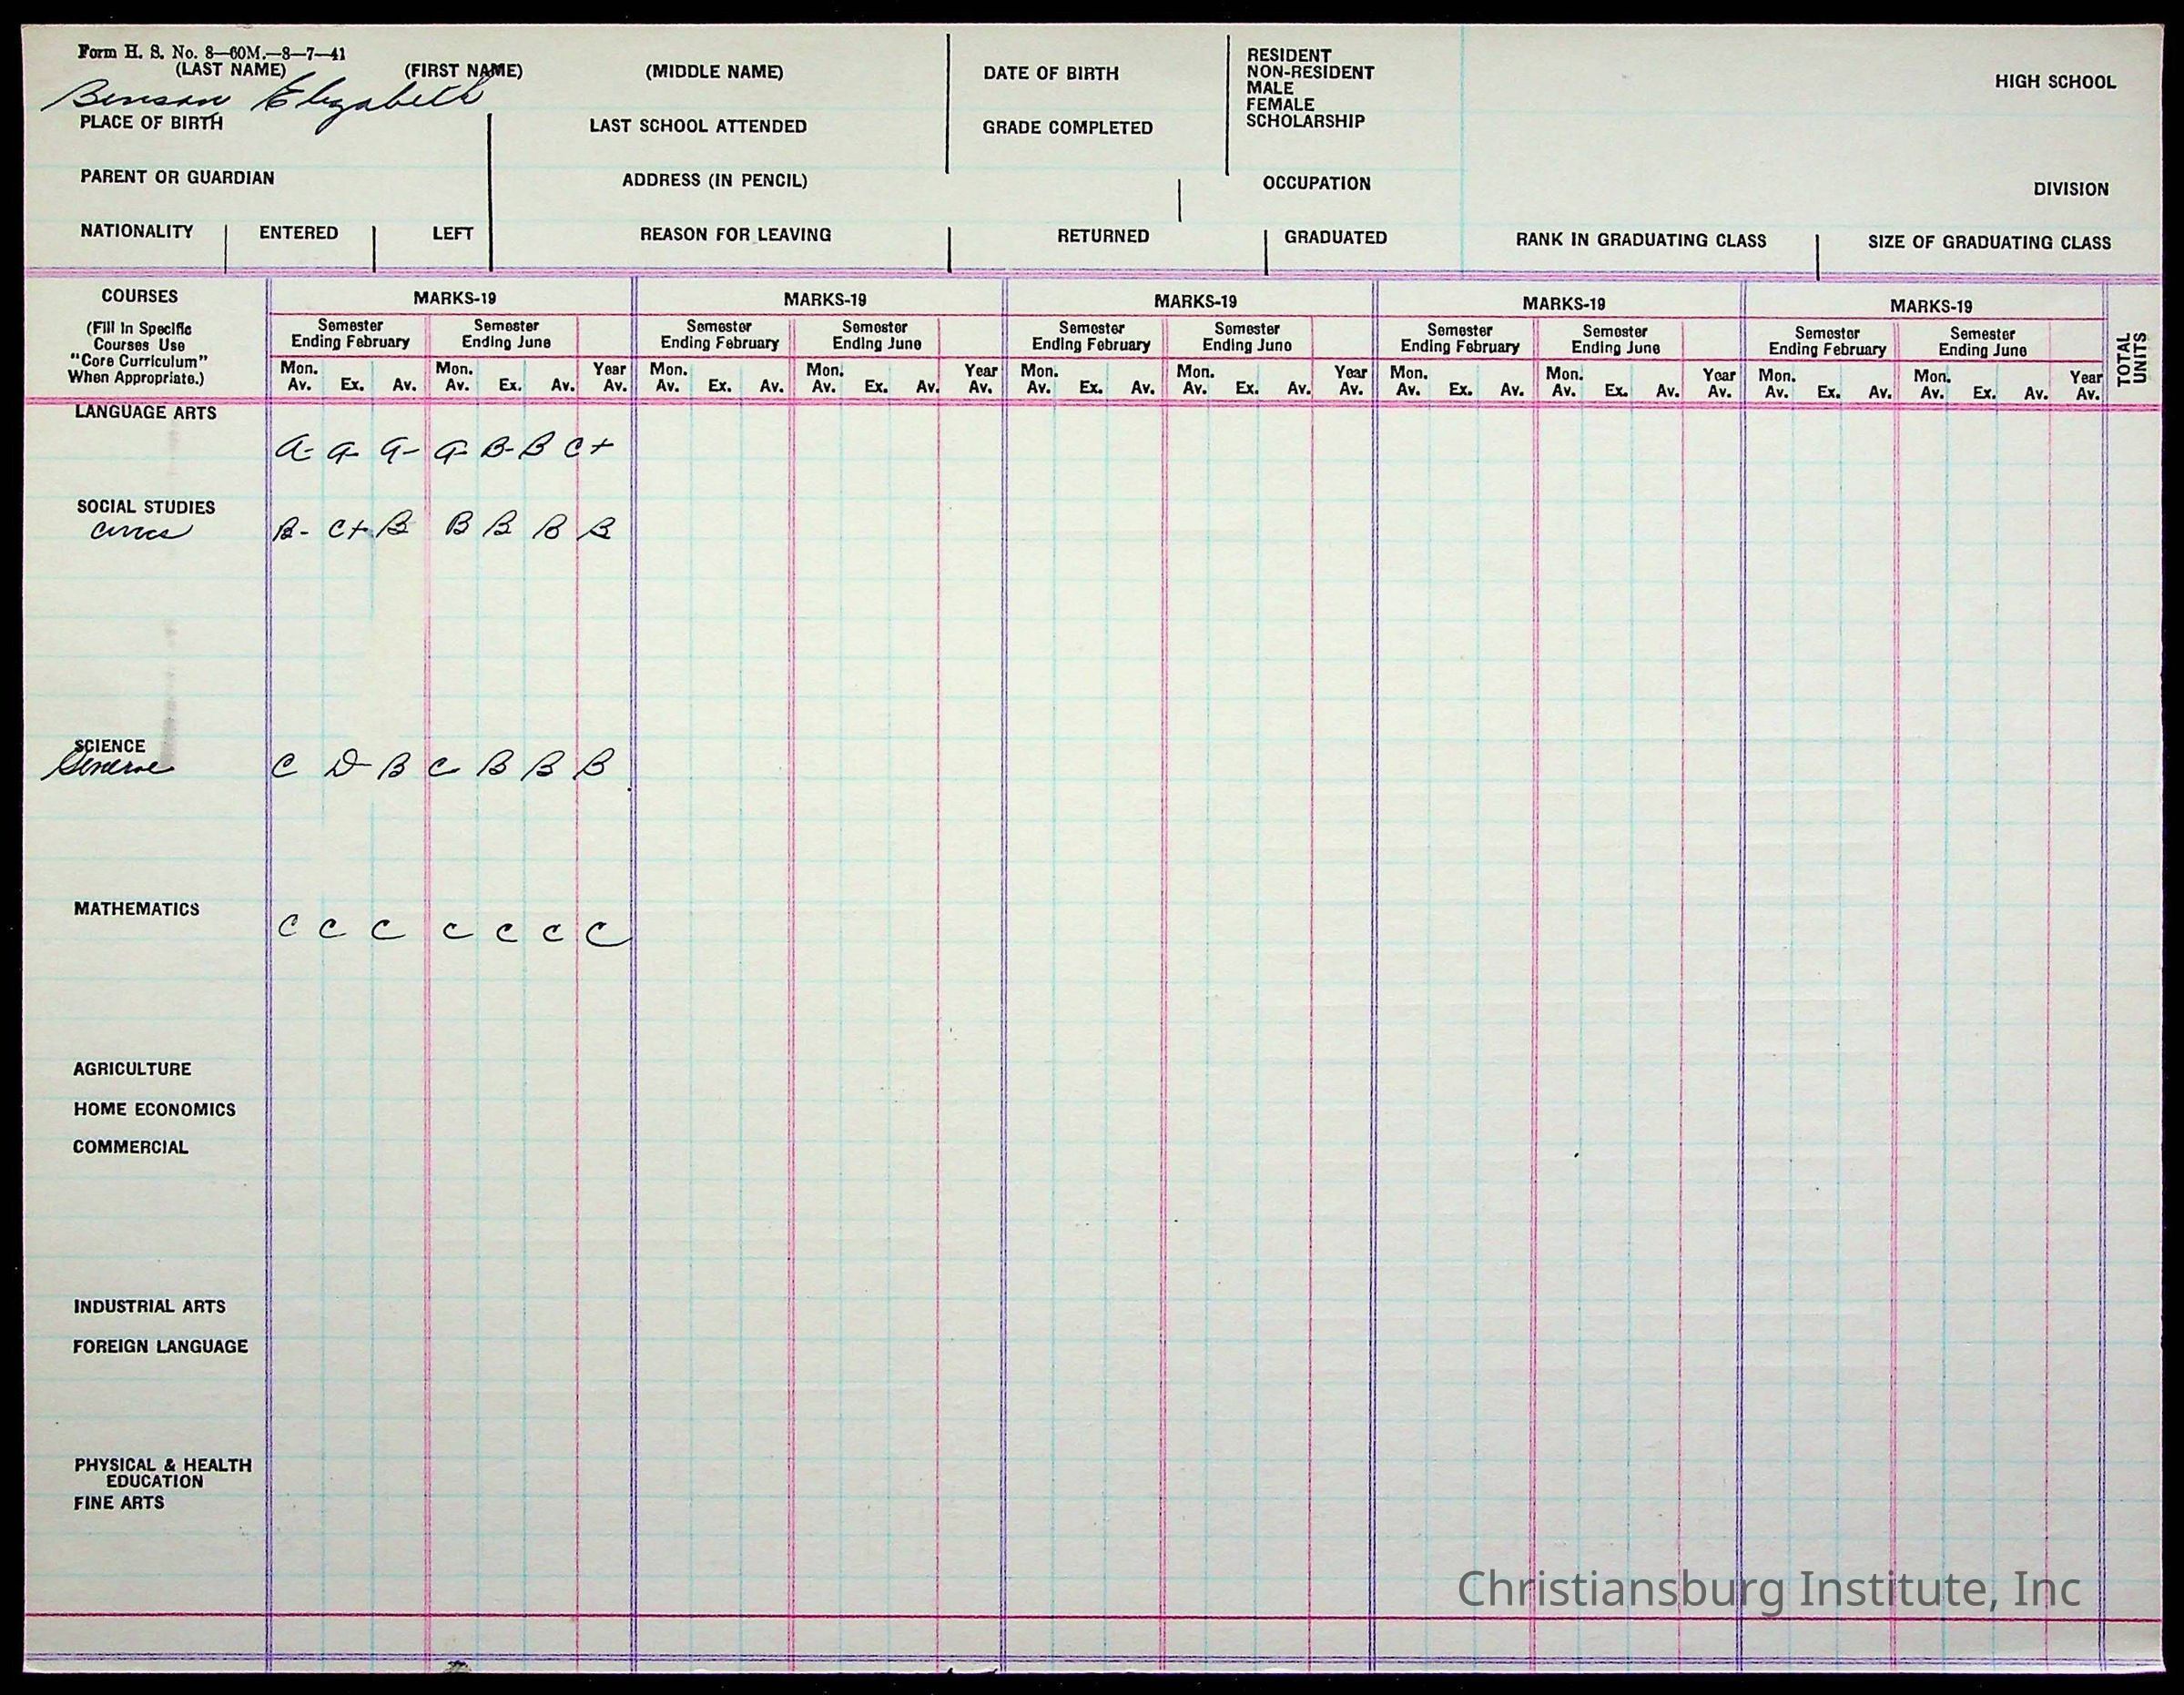 Form H. S. No. 8—60M.—8—7—41
(LAST NAME) (FIRST NAME) (MIDDLE NAME) DATE OF BIRTH
Benson Elizabeth
RESIDENT
NON-RESIDENT
MALE
FEMALE
SCHOLARSHIP
HIGH SCHOOL
PLACE OF BIRTH LAST SCHOOL ATTENDED GRADE COMPLETED
PARENT OR GUARDIAN ADDRESS (IN PENCIL) OCCUPATION DIVISION
NATIONALITY ENTERED LEFT REASON FOR LEAVING RETURNED GRADUATED RANK IN GRADUATING CLASS SIZE OF GRADUATING CLASS
COURSES MARKS-19 MARKS-19 MARKS-19 MARKS-19 MARKS-19
(Fill in Specific
Courses Use
"Core Curriculum"
When Appropriate.)
Semester Semester Semester Semester Semester Semester Semester Semester Semester Semester
Ending February Ending June Ending February Ending June Ending February Ending June Ending February Ending June Ending February Ending June
Mon. Mon. Year Mon. Mon. Year Mon. Mon. Year Mon. Mon. Year Mon. Mon. Year
Av. Ex. Av. Av. Ex. Av. Av. Av. Ex. Av. Av. Ex. Av. Av. Av. Ex. Av. Av. Ex. Av. Av. Av. Ex. Av. Av. Ex. Av. Av. Av. Ex. Av. Av. Ex. Av. Av.
TOTAL
UNITS
LANGUAGE ARTS
a- a- a- a- B- B C+
SOCIAL STUDIES
Civics B- C+ B B B B B
SCIENCE
General C D B C B B B
MATHEMATICS
C C C C C C C
AGRICULTURE
HOME ECONOMICS
COMMERCIAL
INDUSTRIAL ARTS
FOREIGN LANGUAGE
PHYSICAL & HEALTH
EDUCATION
FINE ARTS
Christiansburg Institute, Inc